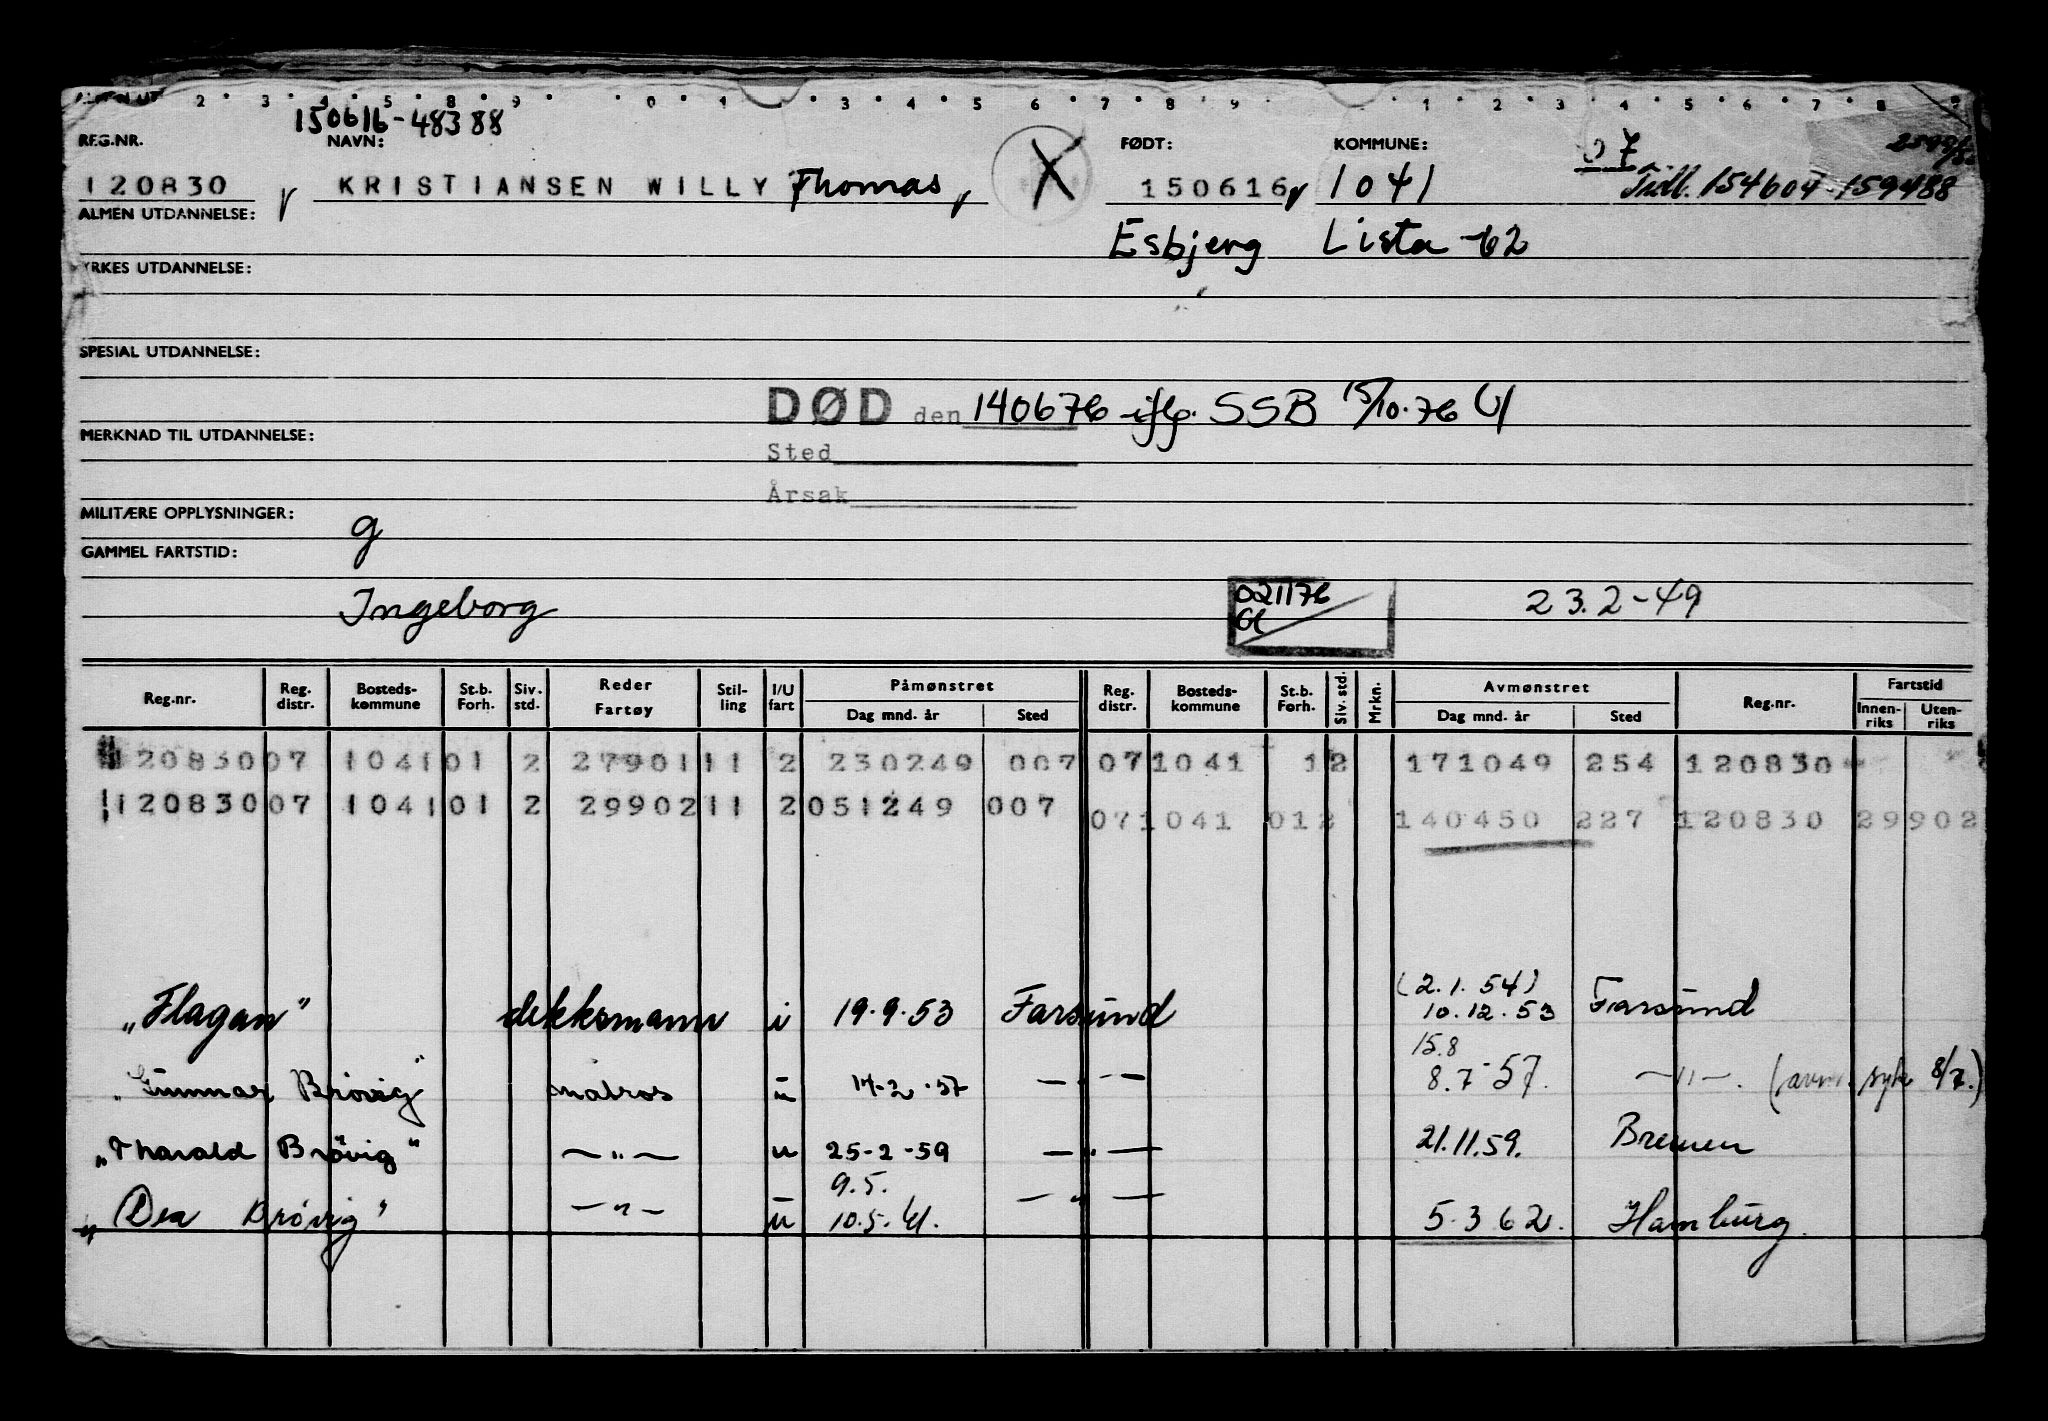 150616-48388
REG.NR. NAVN: FØDT: KOMMUNE: 07
120830 KRISTIANSEN WILLY Thomas X 150616 1041 Tidl. 154604 - 159488
ALMEN UTDANNELSE: Esbjerg Lista -62
YRKES UTDANNELSE:
SPESIAL UTDANNELSE:
DØD den 140676 iflg. SSB 15/10.76
MERKNAD TIL UTDANNELSE:
Sted
Årsak
MILITÆRE OPPLYSNINGER: g
GAMMEL FARTSTID:
Ingeborg 021176 23.2-49
Reg.nr. Reg. distr. Bosteds-kommune St.b. Forh. Siv. std. Reder Fartøy Stil-ling I/U fart Påmønstret Dag mnd. år Sted Reg. distr. Bosteds-kommune St.b. Forh. Siv. std. Mrkn. Avmønstret Dag mnd. år Sted Reg.nr. Fartstid Innen-riks Uten-riks
120830 07 1041 01 2 27901 11 2 230249 007 07 1041 1 2 171049 254 120830
120830 07 1041 01 2 29902 11 2 051249 007 07 1041 01 2 140450 227 120830 29902
(2.1.54)
"Flagan" dekksmann i 19.9.53 Farsund 10.12.53 Farsund
15.8
"Gunnar Brøvig" matros u 14-2-57 —"— 8.7-57. —"—. (avm. syk 8/7.)
"Harald Brøvig" —"— u 25-2-59 —"— 21.11.59. Bremen
9.5.
"Dea Brøvig" —"— u 10.5.61. —"— 5.3 62. Hamburg.